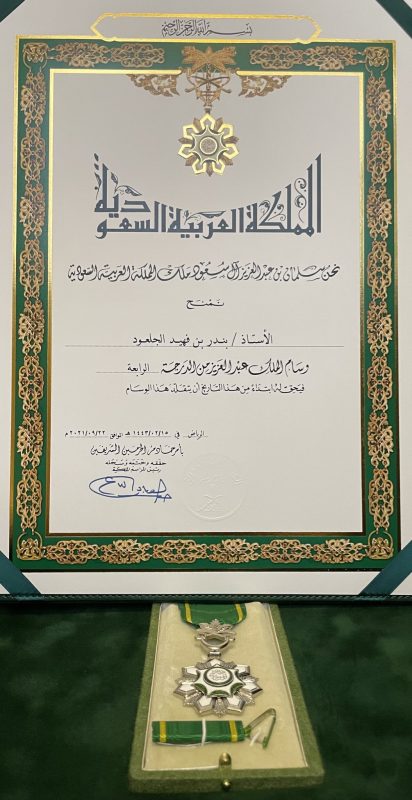 بسم الله الرحمن الرحيم
المملكة العربية السعودية
نحن سلمان بن عبد العزيز آل سعود ملك المملكة العربية السعودية
نمنح
الأستاذ / بندر بن فهيد الجلعود
وسام الملك عبد العزيز من الدرجة الرابعة
فيحق له ابتداء من هذا التاريخ أن يتقلد هذا الوسام
الرياض في ١٤٤٣/٠٢/١٥ هـ الموافق ٢٠٢١/٠٩/٢٢ م
بأمر خادم الحرمين الشريفين
حققه وختمه وسجله
رئيس المراسم الملكية